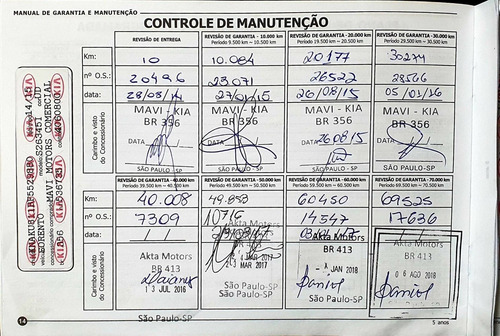 MANUAL DE GARANTIA E MANUTENÇÃO
CONTROLE DE MANUTENÇÃO
REVISÃO DE ENTREGA
REVISÃO DE GARANTIA - 10.000 km
Período 9.500 km ~ 10.500 km
REVISÃO DE GARANTIA - 20.000 km
Período 19.500 km ~ 20.500 km
REVISÃO DE GARANTIA - 30.000 km
Período 29.500 km ~ 30.500 km
Km: 10 10.084 20177 30274
nº O.S.: 20496 23071 26522 28566
data: 28/08/14 27/01/15 26/08/15 05/01/16
Carimbo e visto do Concessionário
MAVI - KIA MAVI - KIA MAVI - KIA MAVI - KIA
BR 356 BR 356 BR 356 BR 356
DATA DATA DATA 260815 DATA
SÃO PAULO-SP São Paulo-SP São Paulo-SP São Paulo-SP
REVISÃO DE GARANTIA - 40.000 km
Período 39.500 km ~ 40.500 km
REVISÃO DE GARANTIA - 50.000 km
Período 49.500 km ~ 50.500 km
REVISÃO DE GARANTIA - 60.000 km
Período 59.500 km ~ 60.500 km
REVISÃO DE GARANTIA - 70.000 km
Período 69.500 km ~ 70.500 km
Km: 40.008 49.853 60450 69525
nº O.S.: 7309 10716 14547 17636
data: / /
Carimbo e visto do Concessionário
Akta Motors Akta Motors Akta Motors Akta Motors
BR 413 BR 413 BR 413
13 JUL 2016 MAR 2017 JAN 2018 06 AGO 2018
São Paulo-SP São Paulo-SP São Paulo-SP São Paulo-SP
MAVI MOTORS COMERCIAL
SORENTO
KIA
14
5 anos